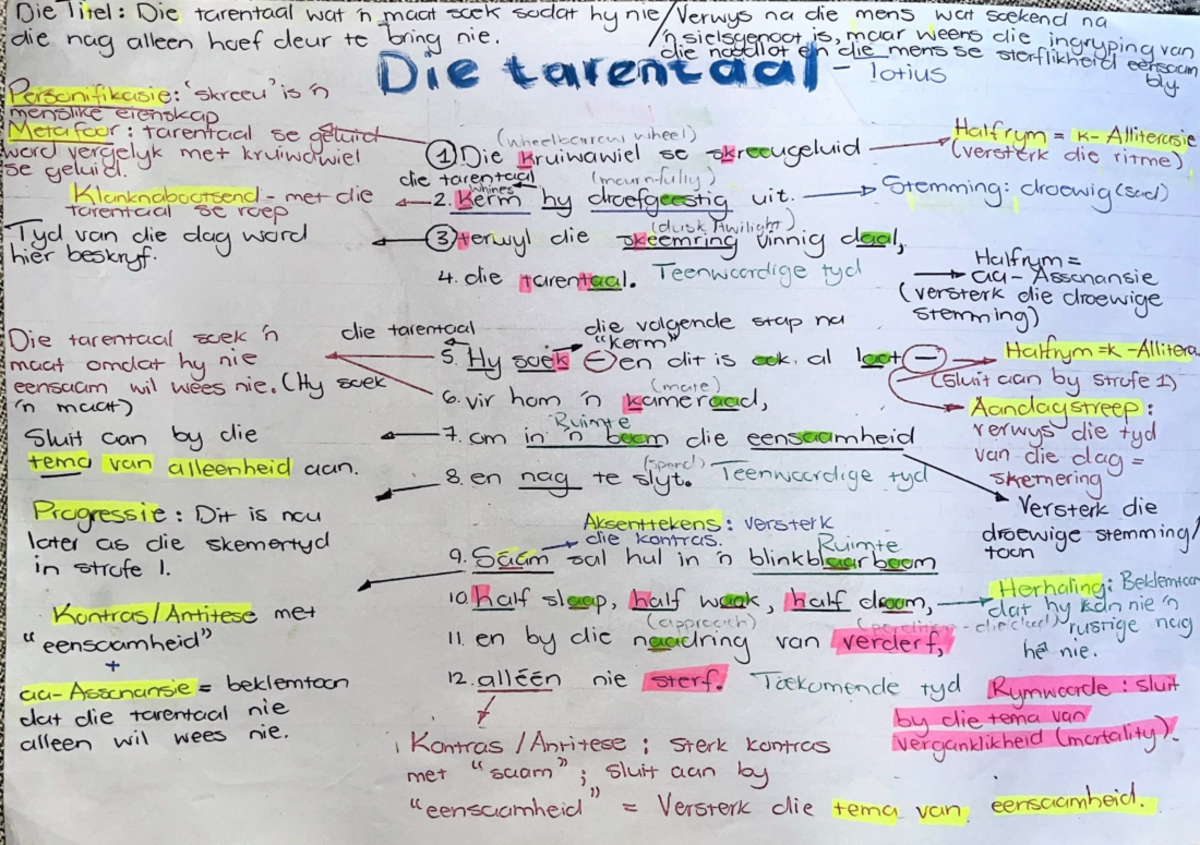 Die Titel: Die tarentaal wat 'n maat soek sodat hy nie
die nag alleen hoef deur te bring nie.
/Verwys na die mens wat soekend na
'n sielsgenoot is, maar weens die ingryping van
die noodlot en die mens se sterflikheid eensaam
bly
Die tarentaal - Totius
Personifikasie: 'skreeu' is 'n
menslike eienskap
Metafoor: tarentaal se geluid
word vergelyk met kruiwawiel
se geluid.
(wheelbarrow wheel)
1 Die kruiwawiel se skreeugeluid
Halfrym = k-Alliterasie
(versterk die ritme)
Klanknabootsend - met die
tarentaal se roep
die tarentaal
whines
(mournfully)
2. Kerm hy droefgeestig uit.
Stemming: droewig (sad)
Tyd van die dag word
hier beskryf.
(dusk/twilight)
3 terwyl die skeemring vinnig daal,
4. die tarentaal. Teenwoordige tyd
Halfrym =
aa-Assonansie
(versterk die droewige
stemming)
Die tarentaal soek 'n
maat omdat hy nie
eensaam wil wees nie. (Hy soek
'n maat)
die tarentaal
die volgende stap na
"kerm"
5. Hy soek – en dit is ook al laat –
Halfrym = k-Allitera
(sluit aan by strofe 1)
(mate)
6. vir hom 'n kameraad,
Aandagstreep:
verwys die tyd
van die dag =
skemering
Sluit aan by die
tema van alleenheid aan.
Ruimte
7. om in 'n boom die eensaamheid
(spend)
8. en nag te slyt. Teenwoordige tyd
Versterk die
droewige stemming/
toon
Progressie: Dit is nou
later as die skemertyd
in strofe 1.
Aksenttekens: versterk
die kontras.
Ruimte
9. Sáám sal hul in 'n blinkblaarboom
Kontras/Antitese met
"eensaamheid"
+
aa-Assonansie = beklemtoon
dat die tarentaal nie
alleen wil wees nie.
10. half slaap, half waak, half droom,
Herhaling: Beklemtoon
dat hy kan nie 'n
rustige nag
hê nie.
(approach)
11. en by die naadring van verderf,
12. alléén nie sterf. Toekomende tyd
Rymwoorde: sluit
by die tema van
verganklikheid (mortality).
Kontras/Antitese; sterk kontras
met "saam"; sluit aan by
"eensaamheid" = Versterk die tema van eensaamheid.